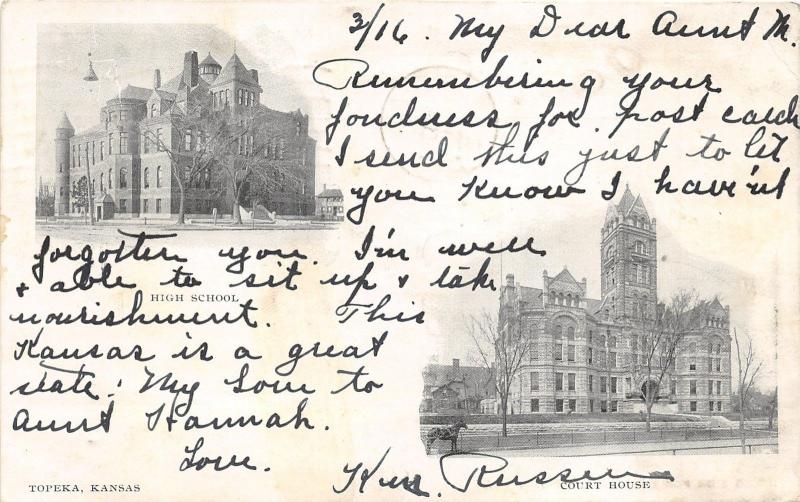 3/16. My Dear Aunt M.
Remembering your
fondness for post cards
I send this just to let
you know I have'nt
forgotten you. I'm well
+ able to sit up + take
nourishment. This
Kansas is a great
state! My Love to
Aunt Hannah.
Love.
Russell
HIGH SCHOOL
TOPEKA, KANSAS
COURT HOUSE